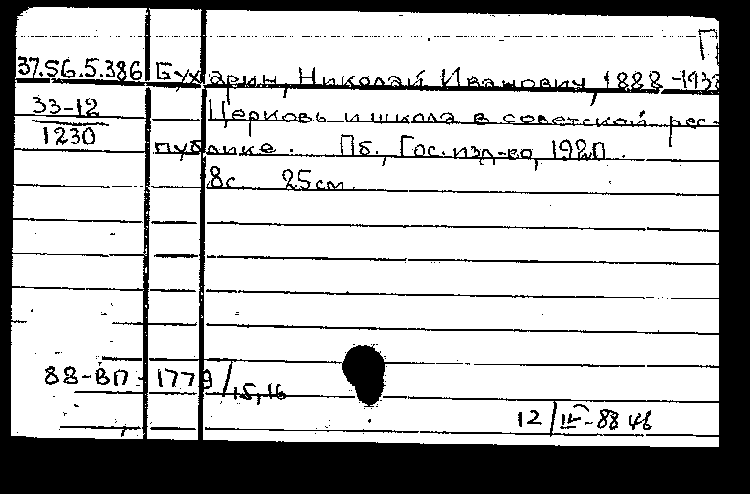 37.56.5.386 Бухарин, Николай Иванович, 1888-1938
33-12
1230
Церковь и школа в советской рес-
публике. Пб., Гос. изд-во, 1920.
8с. 25см.
88-ВП-1779/15,16
12/IV-88